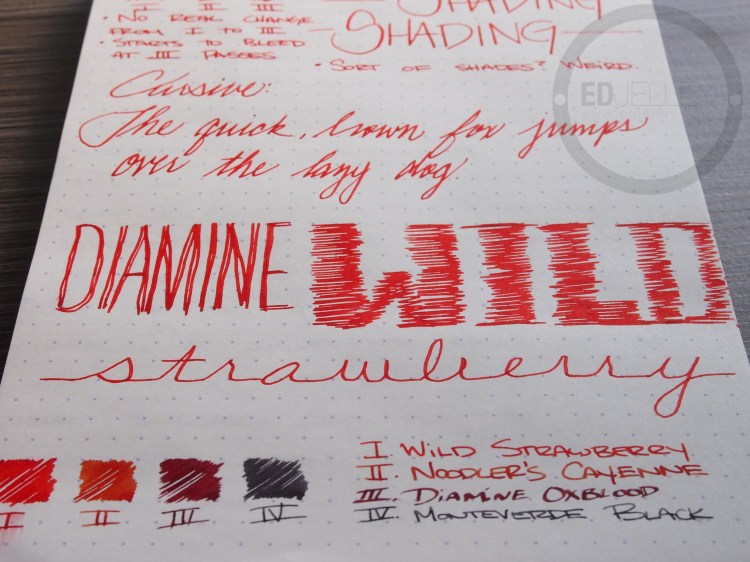 I II III
SHADING
• NO REAL CHANGE
FROM I TO III
SHADING
• STARTS TO BLEED
AT III PASSES
• SORT OF SHADES? WEIRD.
Cursive:
The quick, brown fox jumps
over the lazy dog.
DIAMINE WILD
strawberry
I II III IV
I. WILD STRAWBERRY
II. NOODLER'S CAYENNE
III. DIAMINE OXBLOOD
IV. MONTEVERDE BLACK